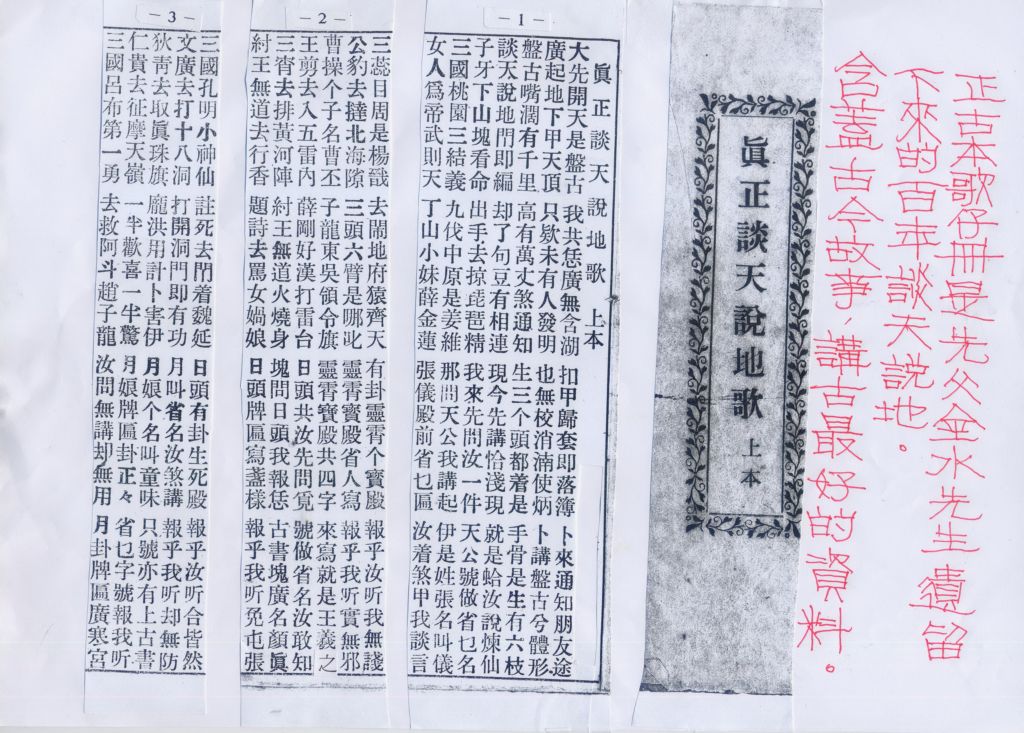 正古本歌仔冊是先父金水先生遺留
下來的百年談天說地。
含蓋古今故事,講古最好的資料。
眞正談天說地歌 上本
-1-
眞正談天說地歌 上本
大先開天是盤古 我共恁廣無含湖 扣甲歸套即落簿 卜來通知朋友途
廣起地下甲天頂 只欵未有人發明 也無校消滿使炳 卜講盤古兮體形
盤古嘴濶有千里 高有萬丈煞通知 生三个頭都着是 手骨是生有六枝
談天說地門即編 却了句豆有相連 現今先講恰淺現 就是蛤汝說煉仙
子牙下山塊看命 出手去掠琵琶精 我來先問汝一件 天公號做省乜名
三國桃園三結義 九伐中原是姜維 那問天公我講起 伊是姓張名叫儀
女人爲帝武則天 丁山小妹薛金蓮 張儀殿前省乜區 汝着煞甲我談言
-2-
三蕊日周是楊戩 去鬧地府猿齊天 有卦靈霄个寳殿 報乎汝听我無諓
公豹去撻北海隙 三頭六臂是哪叱 靈霄寳殿省人寫 報乎我听實無邪
曹操个子名曹丕 子龍東吳領令旗 靈霄寳殿共四字 來寫就是王羲之
王剪去入五雷內 薛剛好漢打雷台 日頭共汝先問 號做省名汝敢知
三霄去排黃河陣 紂王無道火燒身 塊問日頭我報恁 古書塊廣名顏眞
紂王無道去行香 題詩去罵女媧娘 日頭牌區寫盞樣 報乎我听免屯張
-3-
三國孔明小神仙 註死去閃着魏延 日頭有卦生死殿 報乎汝听合皆然
文廣去打十八洞 打開洞門即有功 月叫省名汝煞講 報乎我听却無防
狄靑去取眞珠旗 龐洪用計卜害伊 月娘个名叫童味 只號亦有上古書
仁貴去征摩天嶺 一半歡喜一半驚 月娘牌區卦正々 省乜字號報我听
三國呂布第一勇 去救阿斗趙子龍 汝問無講却無用 月卦牌區廣寒宮